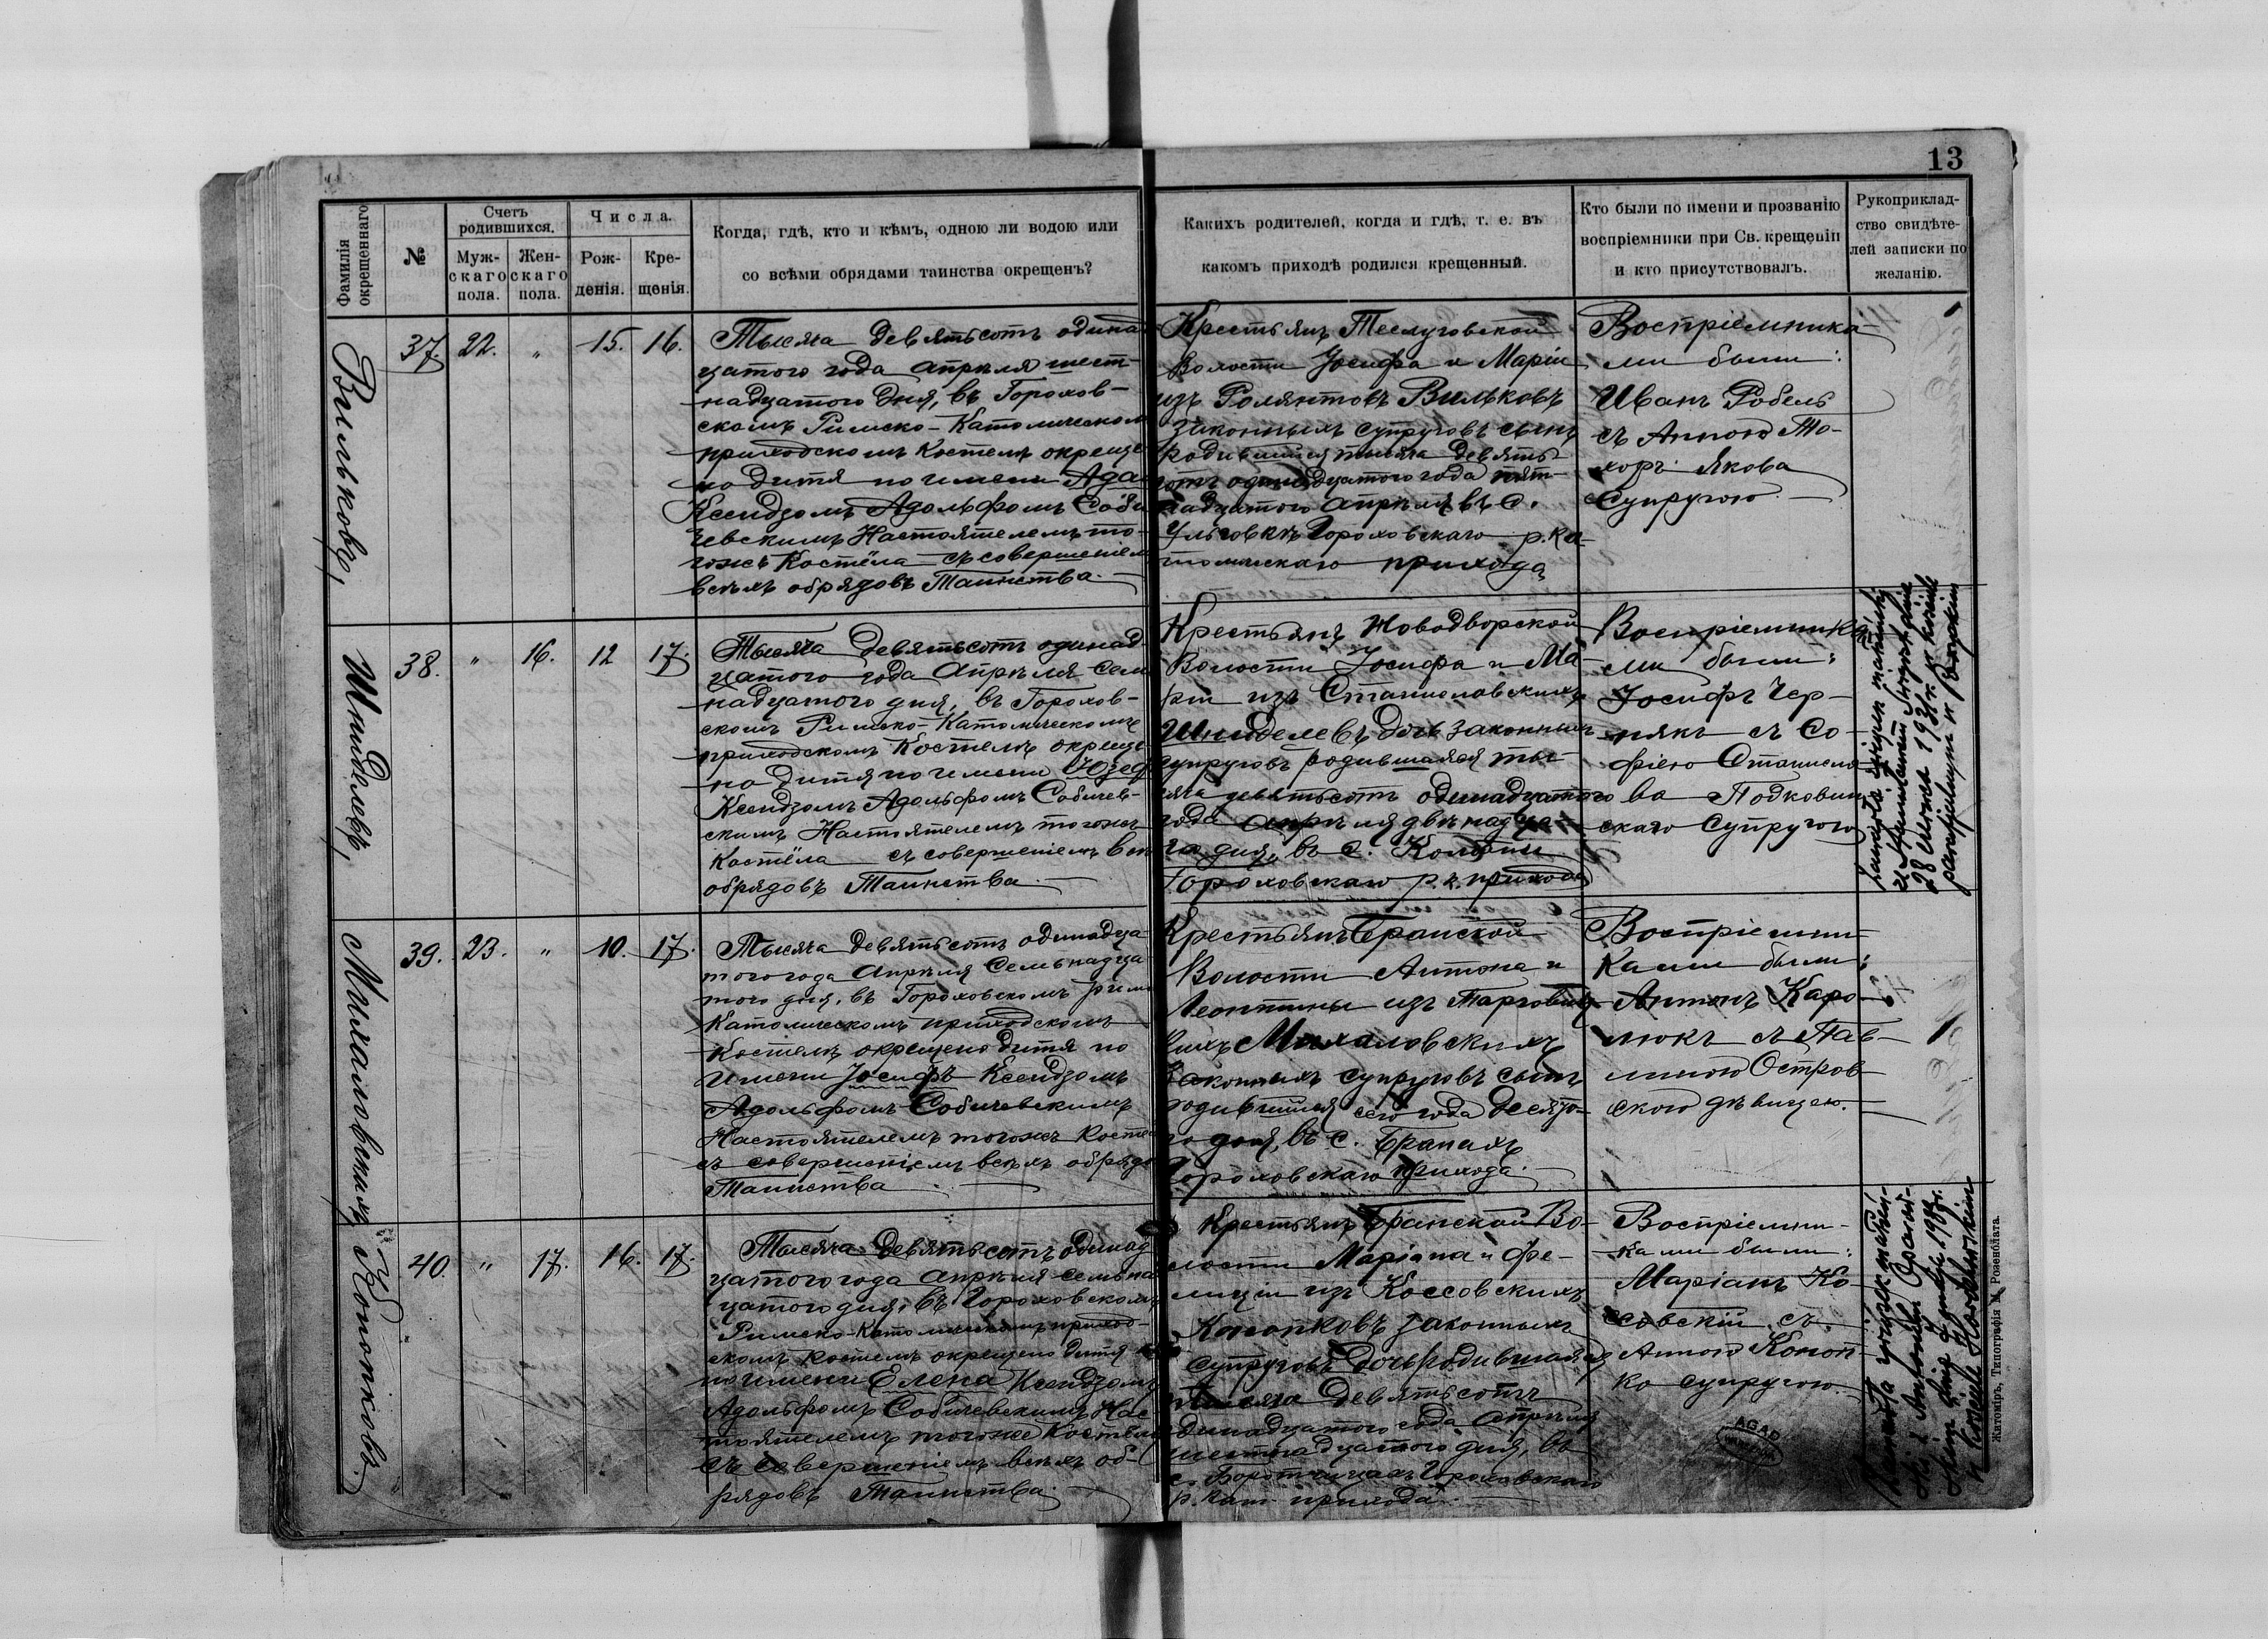 13
Фамилія окрещеннаго
№
Счетъ родившихся.
Муж-скаго пола.
Жен-скаго пола.
Числа.
Рож-денія.
Кре-щенія.
Когда, гдѣ, кто и кѣмъ, одною ли водою или
со всѣми обрядами таинства окрещенъ?
Какихъ родителей, когда и гдѣ, т. е. въ
какомъ приходѣ родился крещенный.
Кто были по имени и прозванію
воспріемники при Св. крещеніи
и кто присутствовалъ.
Рукоприклад-
ство свидѣте-
лей записки по
желанію.
Вильковъ,
37. 22. „ 15. 16.
Тысяча девятьсотъ одинад
цатого года Апрѣля шест-
надцатого дня, въ Горохов-
скомъ Римско-Католическом
приходскомъ Костелѣ окреще
но дитя по имени Ада
Ксендзомъ Адольфомъ Соби
чевскимъ Настоятелемъ то-
гожъ Костёла съ совершеніем
всѣхъ обрядовъ Таинства.
Крестьянъ Теслуговской
Волости Іосифа и Маріи
изъ Вильковъ
законныхъ супруговъ сынъ
родившійся тысяча девять
сотъ одинадцатого года пят-
надцатого Апрѣля въ с.
Ульговкѣ Гороховскаго р. ка-
толическаго прихода
Воспріемника-
ми были:
Иванъ Робель
съ Анною То-
хоръ Якова
Супругою.
Шниделевъ,
38. „ 16. 12 17.
Тысяча девятьсотъ одинад
цатого года Апрѣля сем
надцатого дня, въ Горохов-
скомъ Римско-Католическомъ
приходскомъ Костелѣ окреще
но дитя по имени Юзеф
Ксендзомъ Адольфомъ Собичев-
скимъ Настоятелемъ тогожъ
Костёла съ совершеніемъ всѣ
обрядовъ Таинства.
Крестьянъ Новодворской
Волости Іосифа и Ма-
ріи изъ Станиславскихъ
Шниделевъ дочь законныхъ
супруговъ родившаяся ты-
сяча девятьсотъ одинадцатого
года Апрѣля двѣнадца-
го дня, въ с.
Гороховскаго р. к. прихода
Воспріемника-
ми были:
Іосифъ Чер-
някъ съ Со-
фіею Станисла-
ва Подковин
скаго Супругою
28 1931 r. w kościele
parafjalnym w
Михаловскихъ
39. 23. „ 10. 17.
Тысяча девятьсотъ одинадца
того года Апрѣля Семьнадца
того дня, въ Гороховскомъ Рим
Католическомъ приходскомъ
Костелѣ окрещено дитя по
имени Іосифъ Ксендзомъ
Адольфомъ Собичевскимъ
Настоятелемъ тогожъ Косте
съ совершеніемъ всѣхъ обрядо
Таинства
Крестьянъ Бранской
Волости Антона и
Леонтины изъ Тарговиц
кихъ Михаловскихъ
Законныхъ супруговъ сынъ
родившійся сего года десято-
го дня, въ с. Бранахъ
Гороховскаго прихода.
Воспріемни-
ками были:
Антонъ Каро-
люкъ съ Пав-
линою Остров
скою дѣвицею.
Кононковъ.
40. „ 17. 16. 17.
Тысяча девятьсотъ одинад
цатого года Апрѣля семьна
цатого дня, въ Гороховскомъ
Римско-Католическомъ приход-
скомъ костелѣ окрещено дитя
по имени Елена Ксендзомъ
Адольфомъ Собичевскимъ Нас
тоятелемъ тогоже Костёла
съ совершеніемъ всѣхъ об-
рядовъ Таинства.
Крестьянъ Бранской Во-
лости Маріана и Фе-
лиціи изъ Коссовскихъ
Кононковъ законныхъ
супруговъ дочь родившаяся
тысяча девятьсотъ
одинадцатого года Апрѣля
шестнадцатого дня, въ
с. Боротчицахъ Гороховскаго
р. кат. прихода.
Воспріемни-
ками были:
Маріанъ Ко-
совскій съ
Анною Конон-
ко супругою.
AGAD
Житоміръ, Типографія М. Розенблата.